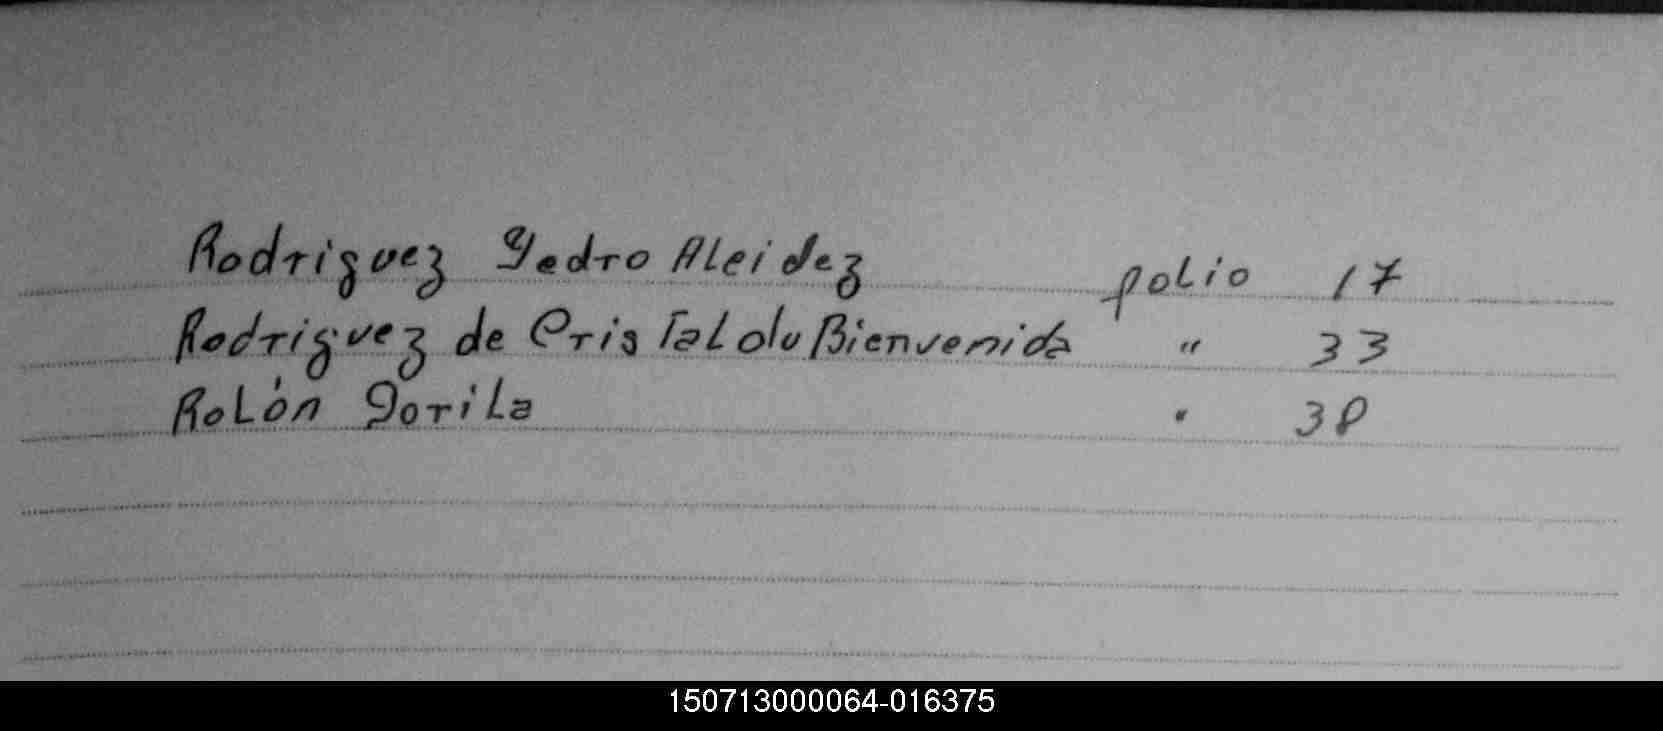 Rodriguez Pedro Aleidez folio 17
Rodriguez de Cristaldo Bienvenida " 33
Rolón Dorila " 38
150713000064-016375